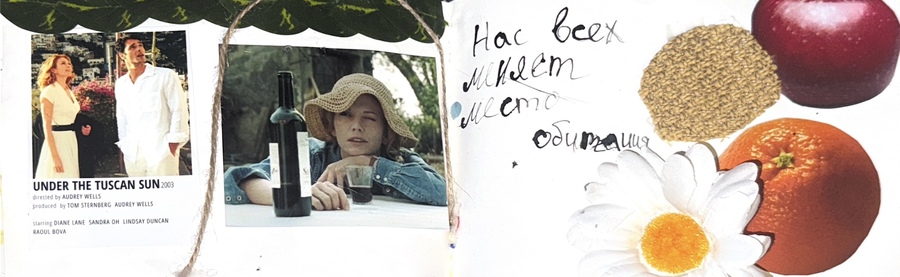 UNDER THE TUSCAN SUN 2003
directed by AUDREY WELLS
produced by TOM STERNBERG AUDREY WELLS
starring DIANE LANE SANDRA OH LINDSAY DUNCAN
RAOUL BOVA
Нас всех
меняет
место
обитания